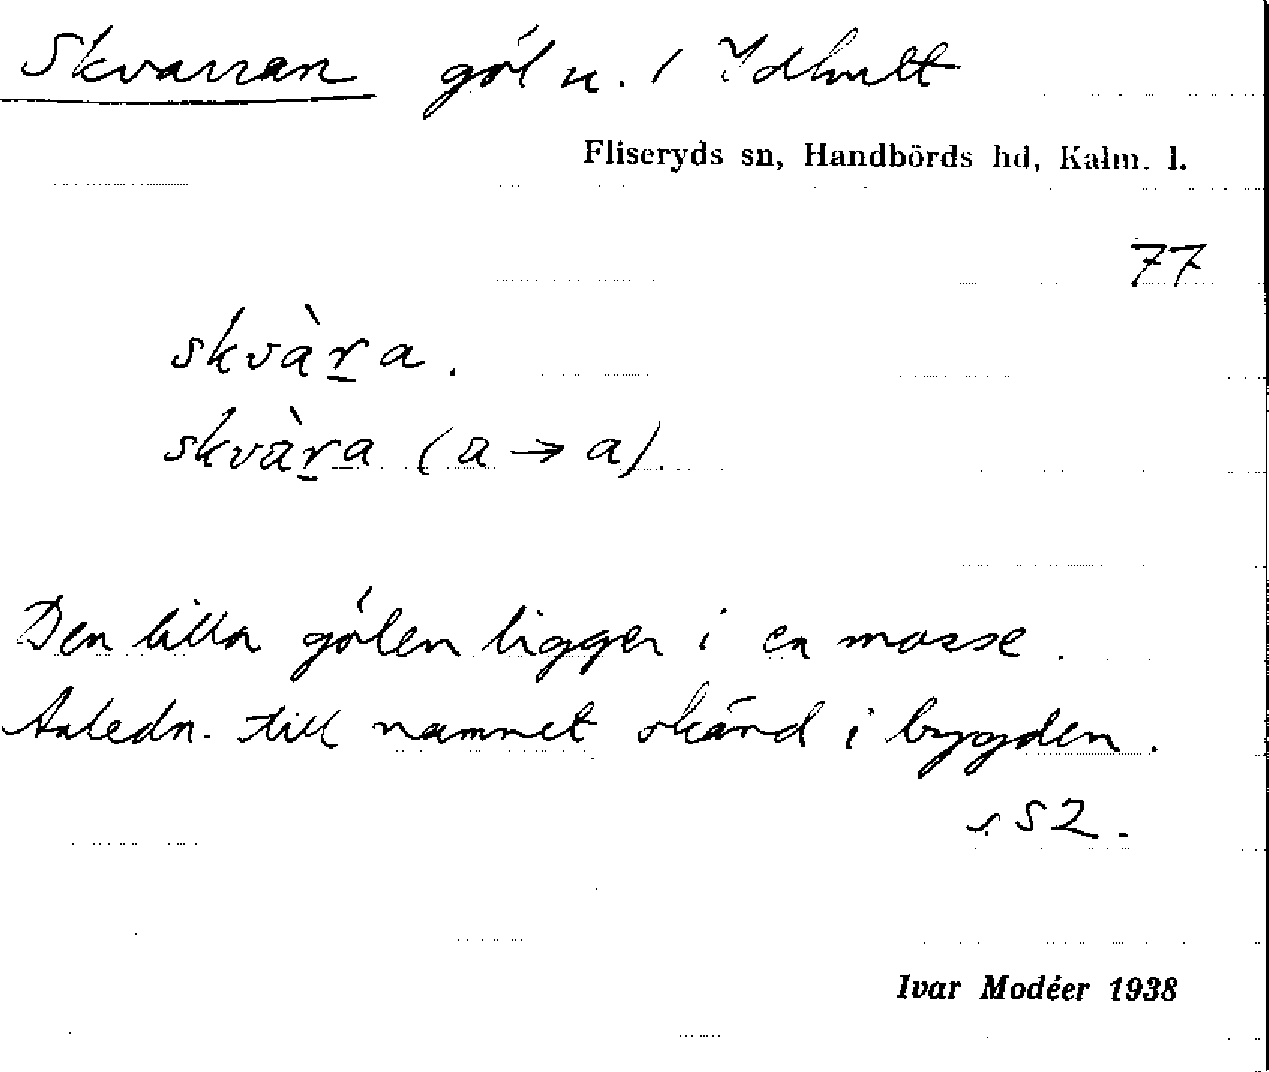 Skvarran göl n. / Idhult
Fliseryds sn, Handbörds hd, Kalm. l.
77
skvàr̲a.
skvàr̲a (a → a).
Den lilla gölen ligger i en mosse.
Anledn. till namnet okänd i bygden.
s. 52.
Ivar Modéer 1938